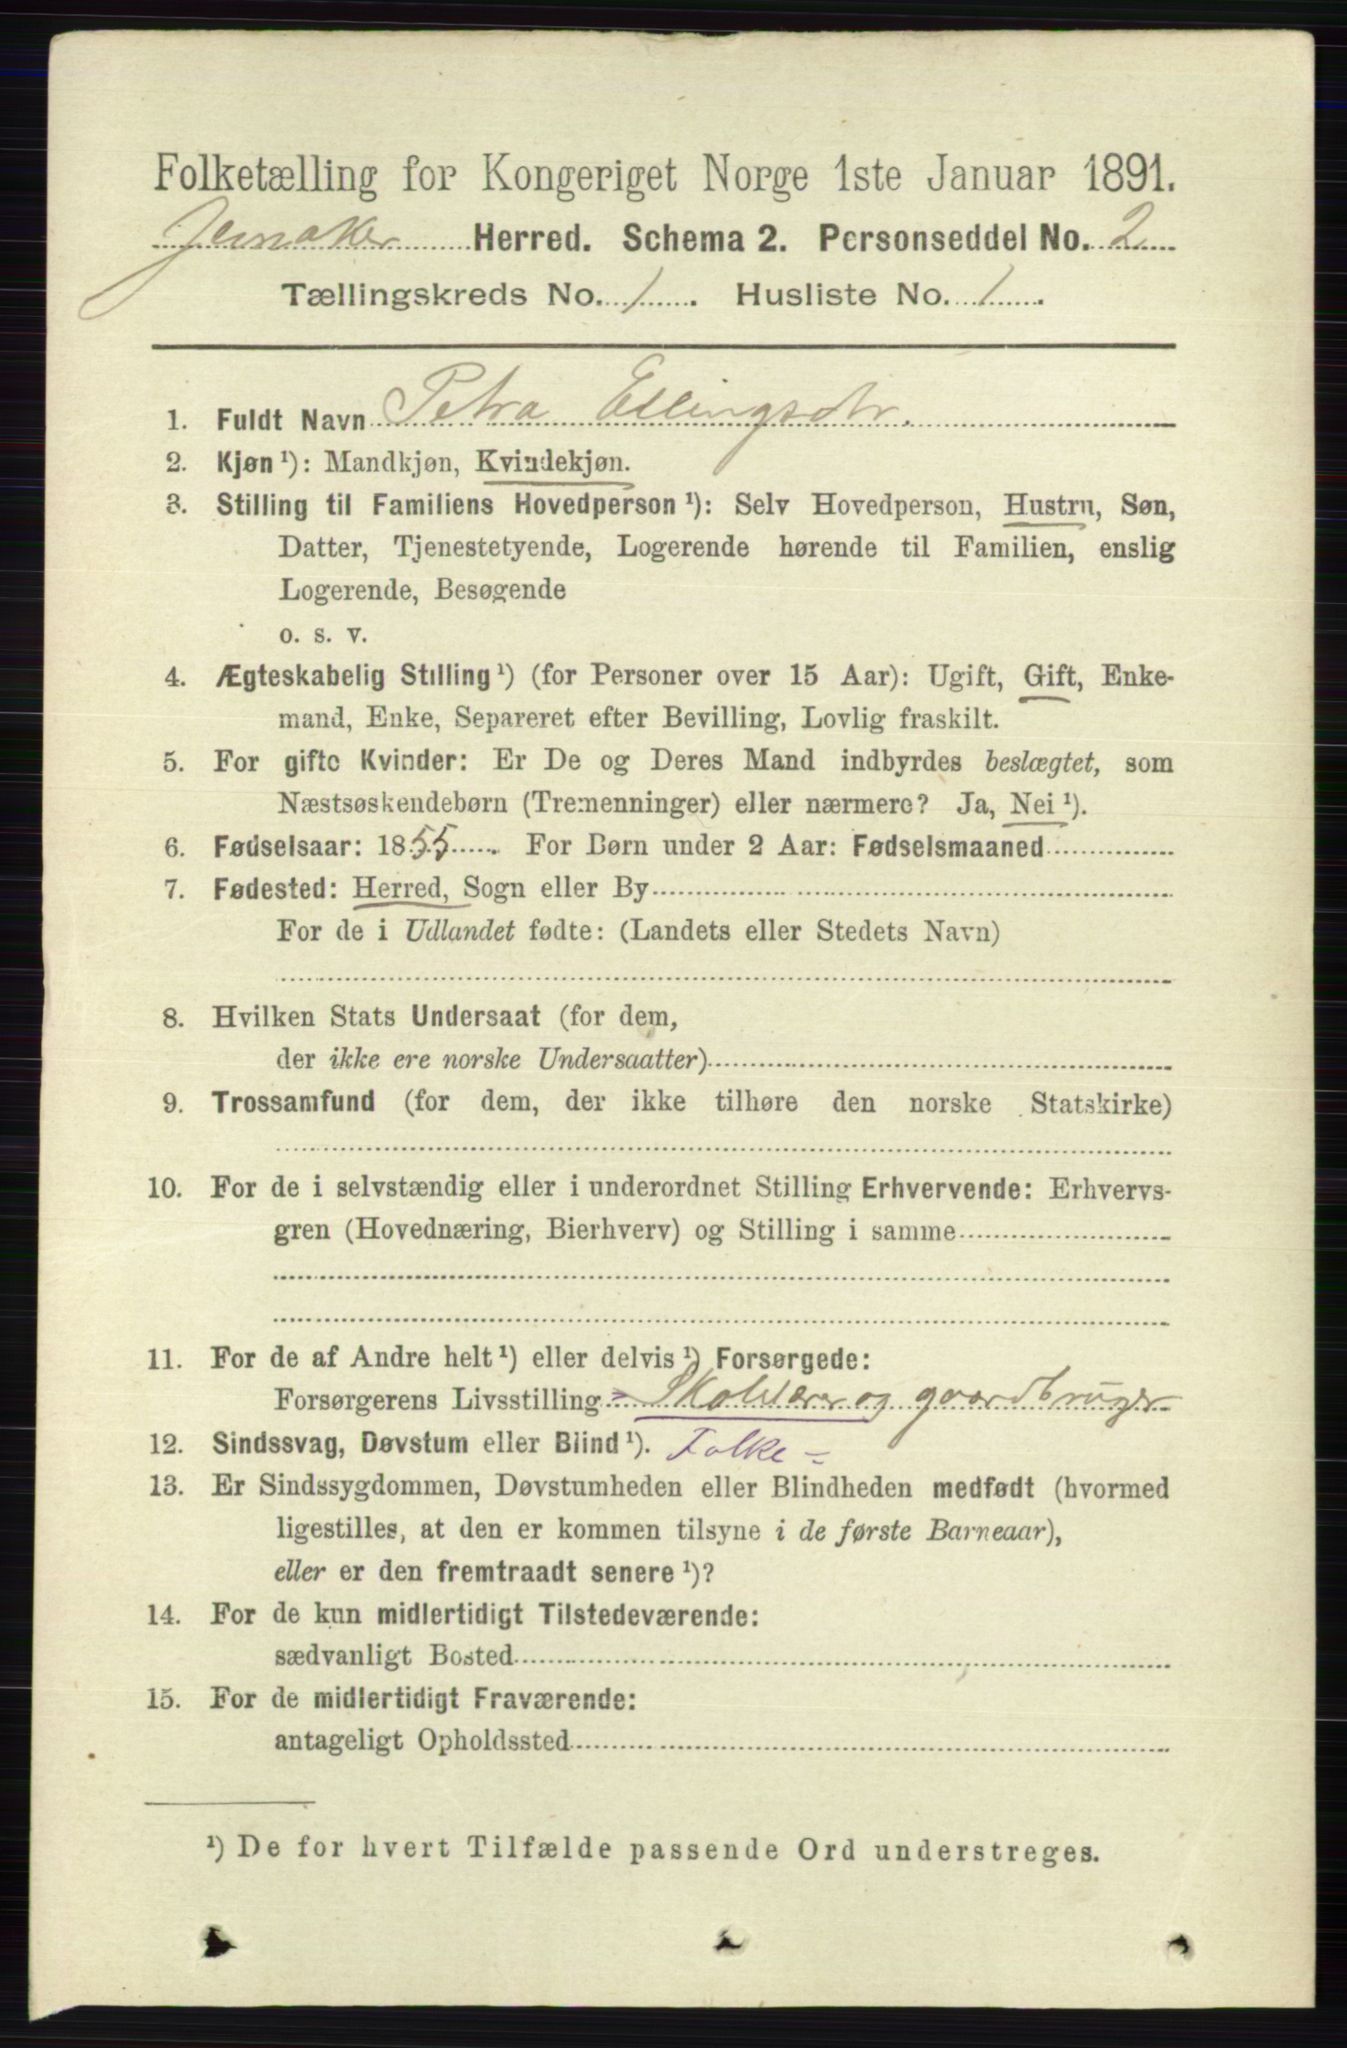 Folketælling for Kongeriget Norge 1ste Januar 1891.
Jevnaker Herred. Schema 2. Personseddel No. 2
Tællingskreds No. 1. Husliste No. 1.
1. Fuldt Navn Petra Ellingsdtr.
2. Kjøn ¹): Mandkjøn, Kvindekjøn.
3. Stilling til Familiens Hovedperson ¹): Selv Hovedperson, Hustru, Søn,
Datter, Tjenestetyende, Logerende hørende til Familien, enslig
Logerende, Besøgende
o. s. v.
4. Ægteskabelig Stilling ¹) (for Personer over 15 Aar): Ugift, Gift, Enke-
mand, Enke, Separeret efter Bevilling, Lovlig fraskilt.
5. For gifte Kvinder: Er De og Deres Mand indbyrdes beslægtet, som
Næstsøskendebørn (Tremenninger) eller nærmere? Ja, Nei ¹).
6. Fødselsaar: 1855. For Børn under 2 Aar: Fødselsmaaned
7. Fødested: Herred, Sogn eller By
For de i Udlandet fødte: (Landets eller Stedets Navn)
8. Hvilken Stats Undersaat (for dem,
der ikke ere norske Undersaatter)
9. Trossamfund (for dem, der ikke tilhøre den norske Statskirke)
10. For de i selvstændig eller i underordnet Stilling Erhvervende: Erhvervs-
gren (Hovednæring, Bierhverv) og Stilling i samme
11. For de af Andre helt ¹) eller delvis ¹) Forsørgede:
Forsørgerens Livsstilling = Skolelærer og gaardbruger
12. Sindssvag, Døvstum eller Blind ¹). Folke =
13. Er Sindssygdommen, Døvstumheden eller Blindheden medfødt (hvormed
ligestilles, at den er kommen tilsyne i de første Barneaar),
eller er den fremtraadt senere ¹)?
14. For de kun midlertidigt Tilstedeværende:
sædvanligt Bosted
15. For de midlertidigt Fraværende:
antageligt Opholdssted
¹) De for hvert Tilfælde passende Ord understreges.